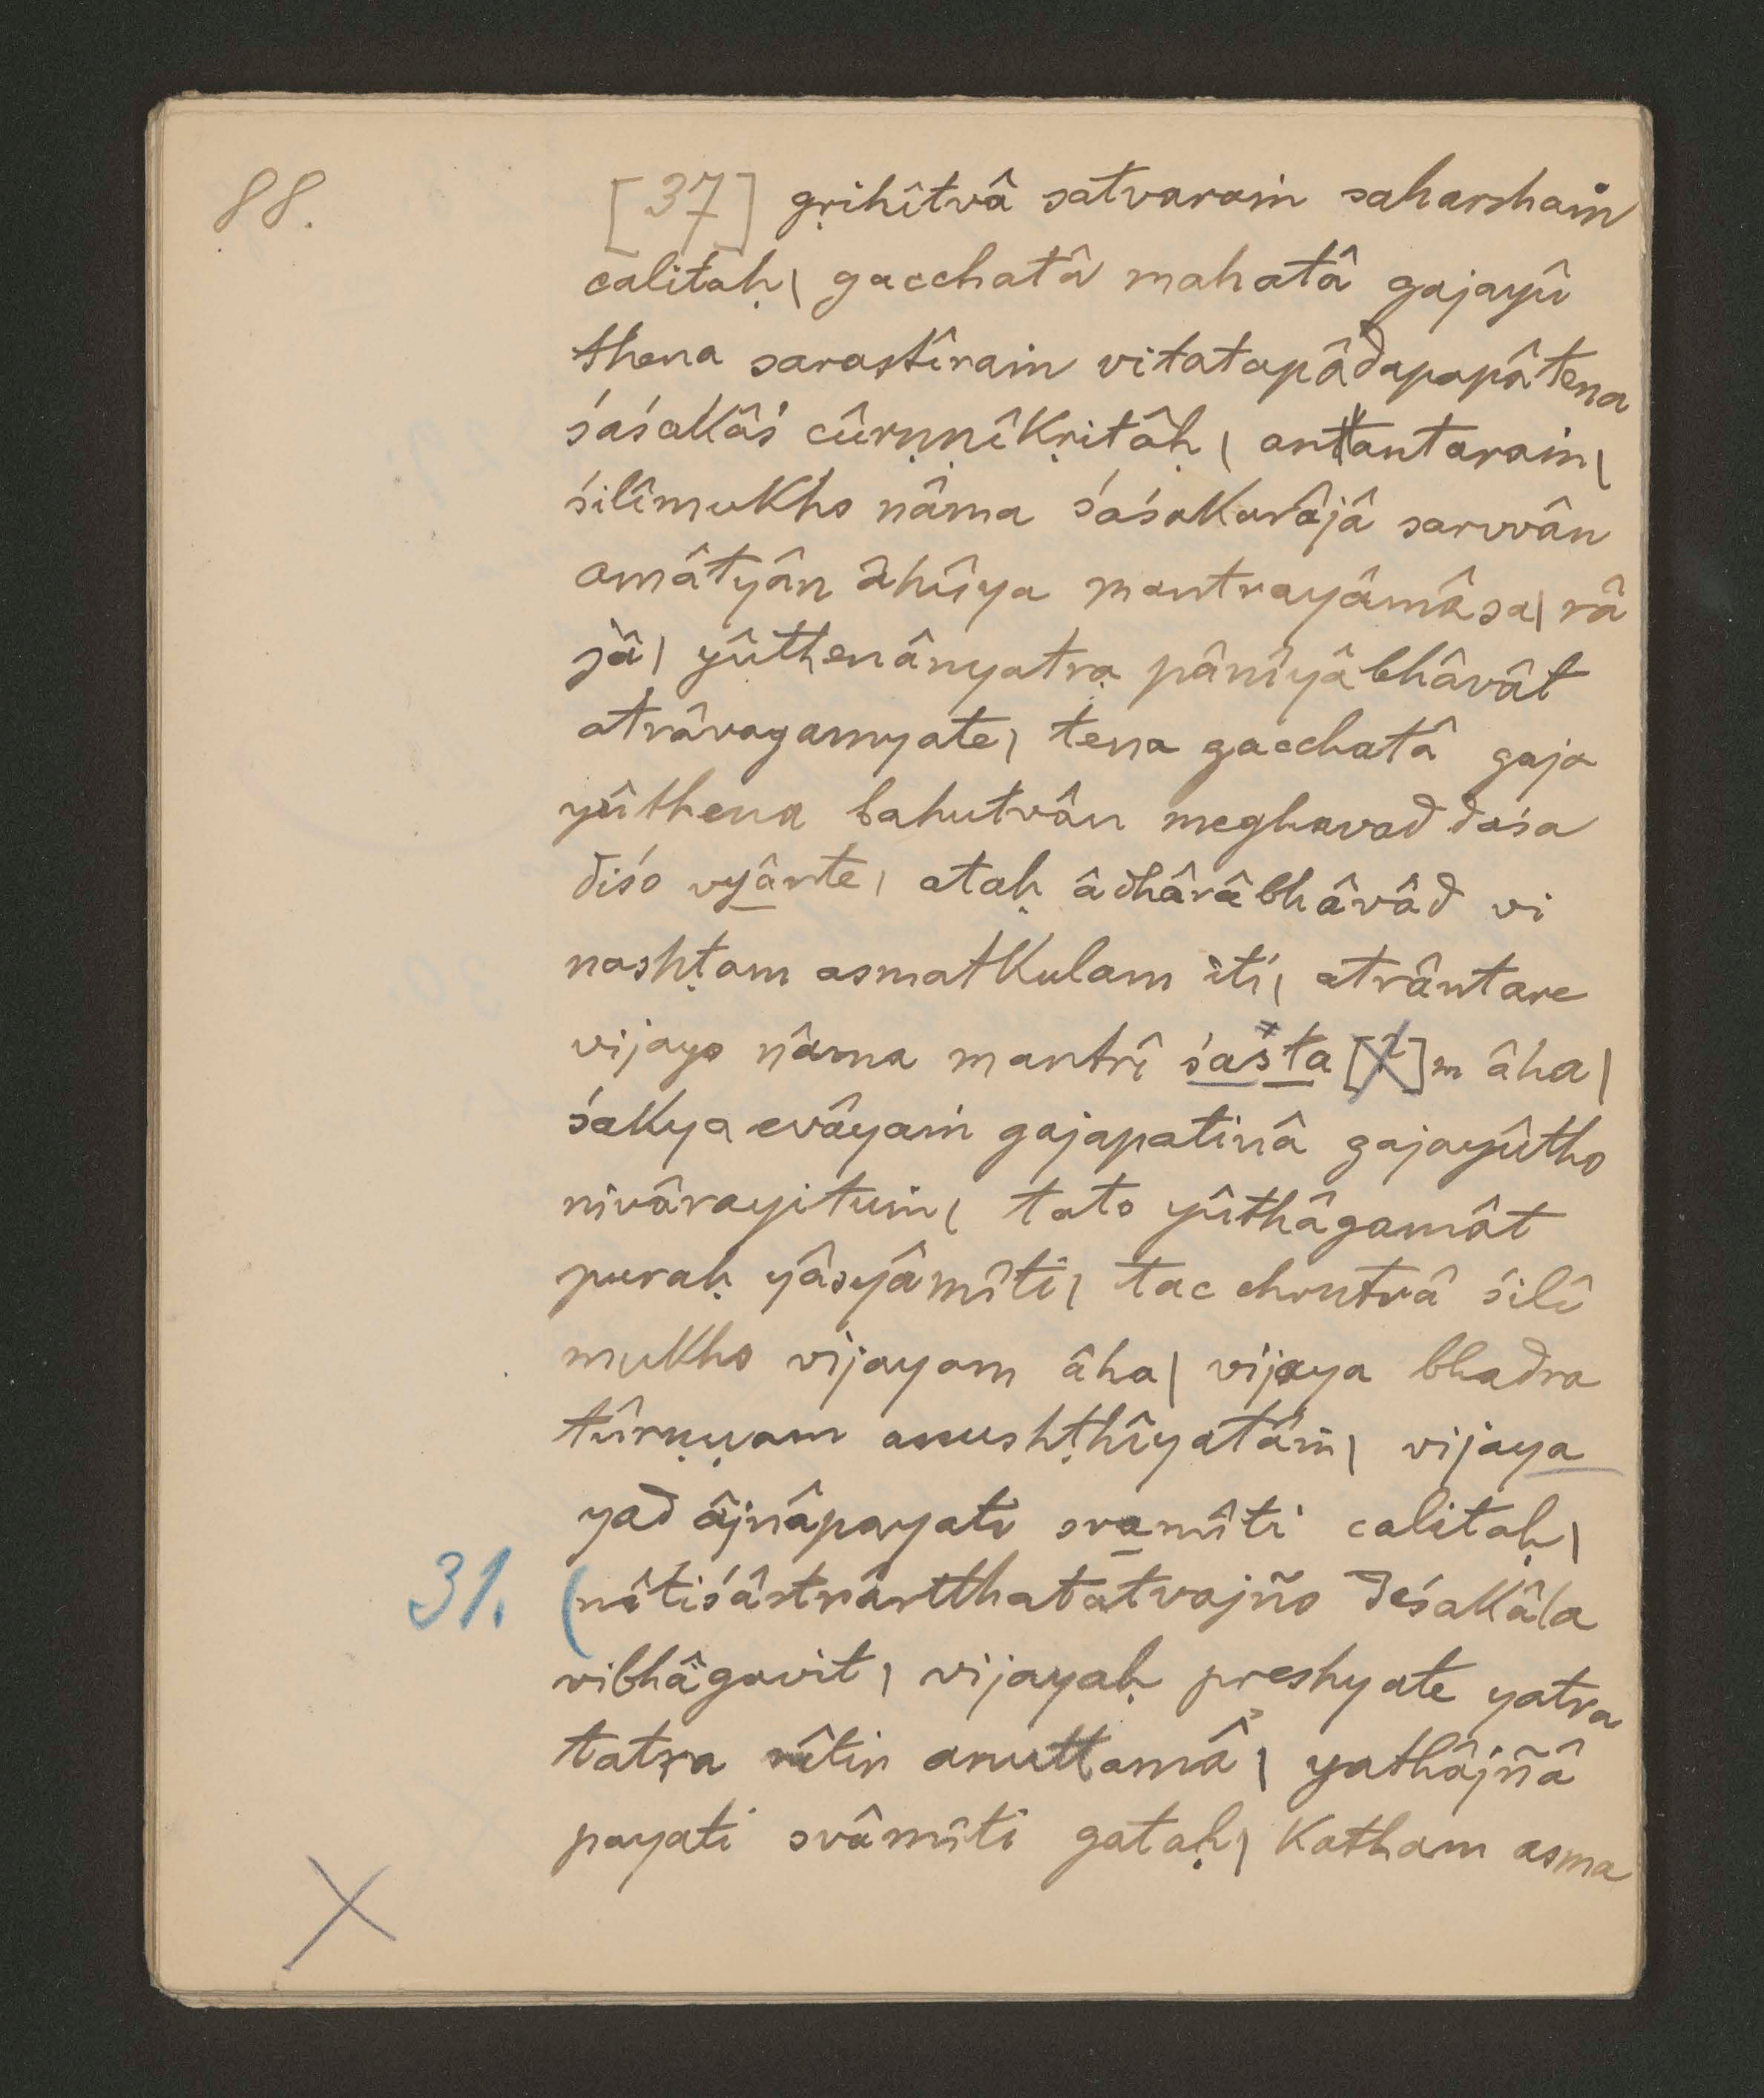 88.
[37] gṛihîtvâ satvaraṁ saharshaṁ
calitaḥ| gacchatâ mahatâ gajayû
thena sarastîraṁ vitatapâdapapâtena
śaśakâś cûrṇṇîkṛitâḥ| antantaraṁ|
śilîmukho nâma śaśakarâjâ sarvvân
amâtyân âhûya mantrayâmâsa| râ
jâ| yûthenânyatra pânîyâbhâvât
atrâvagamyate| tena gacchatâ gaja
yûthena bahutvân meghavad daśa
diśo vyânte| ataḥ âdhârâbhâvâd vi
nashṭam asmatkulam iti| atrântare
vijayo nâma mantrî śasta[ ]m âha|
śakya evâyaṁ gajapatinâ gajayûtho
nivârayituṁ| tato yûthâgamât
puraḥ yâsyâmîti| tac chrutvâ śilî
mukho vijayam âha| vijaya bhadra
tûrṇṇam anushṭhîyatâṁ| vijaya
yad âjnâpayati svamîti calitaḥ|
31. (nîtiśâstrârtthatatvajño deśakâla
vibhâgavit| vijayaḥ preshyate yatra
tatra nîtir anuttamâ| yathâjñâ
payati svâmîti gataḥ| katham asma
X